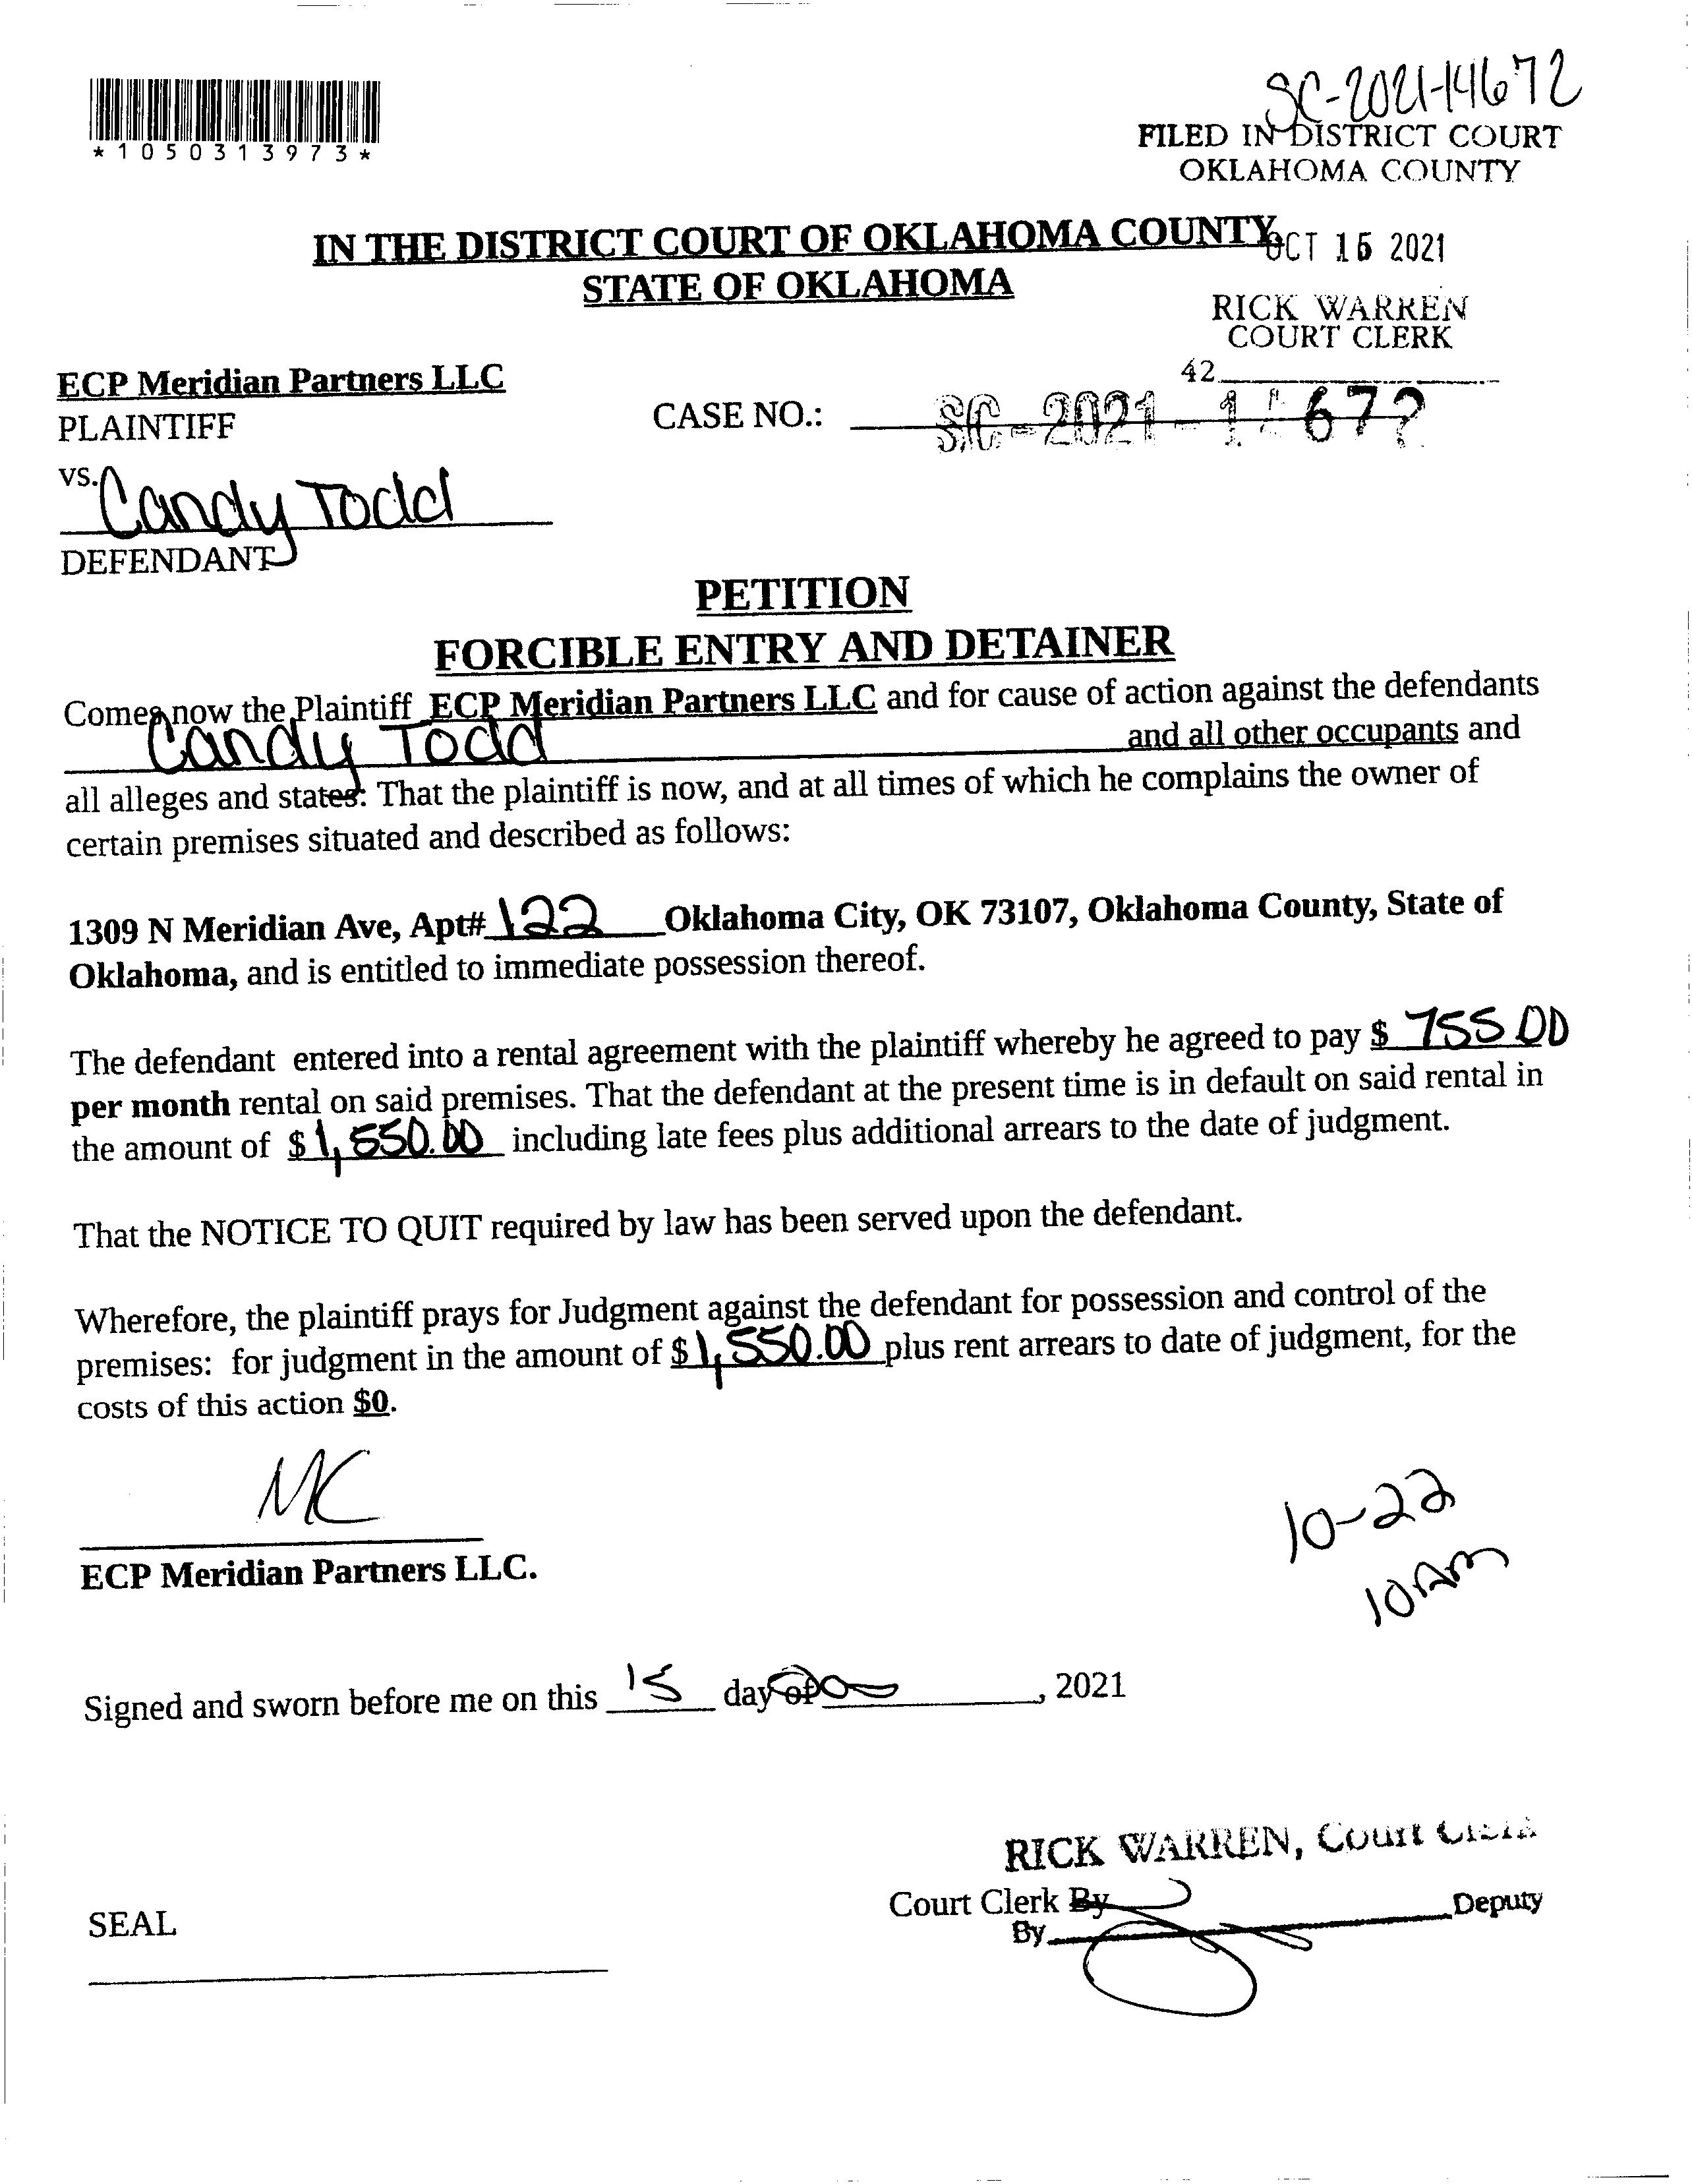 *1050313973*
SC-2021-14672
FILED IN DISTRICT COURT
OKLAHOMA COUNTY
IN THE DISTRICT COURT OF OKLAHOMA COUNTY
OCT 15 2021
STATE OF OKLAHOMA
RICK WARREN
COURT CLERK
42
ECP Meridian Partners LLC
PLAINTIFF
CASE NO.: SC-2021-14672
vs.
Candy Todd
DEFENDANT
PETITION
FORCIBLE ENTRY AND DETAINER
Comes now the Plaintiff ECP Meridian Partners LLC and for cause of action against the defendants
Candy Todd and all other occupants and
all alleges and states: That the plaintiff is now, and at all times of which he complains the owner of
certain premises situated and described as follows:
1309 N Meridian Ave, Apt# 122 Oklahoma City, OK 73107, Oklahoma County, State of
Oklahoma, and is entitled to immediate possession thereof.
The defendant entered into a rental agreement with the plaintiff whereby he agreed to pay $ 755.00
per month rental on said premises. That the defendant at the present time is in default on said rental in
the amount of $ 1,550.00 including late fees plus additional arrears to the date of judgment.
That the NOTICE TO QUIT required by law has been served upon the defendant.
Wherefore, the plaintiff prays for Judgment against the defendant for possession and control of the
premises: for judgment in the amount of $ 1,550.00 plus rent arrears to date of judgment, for the
costs of this action $0.
MC
ECP Meridian Partners LLC.
10-22
10AM
Signed and sworn before me on this 15 day of , 2021
RICK WARREN, Court Clerk
Court Clerk By
SEAL
By Deputy